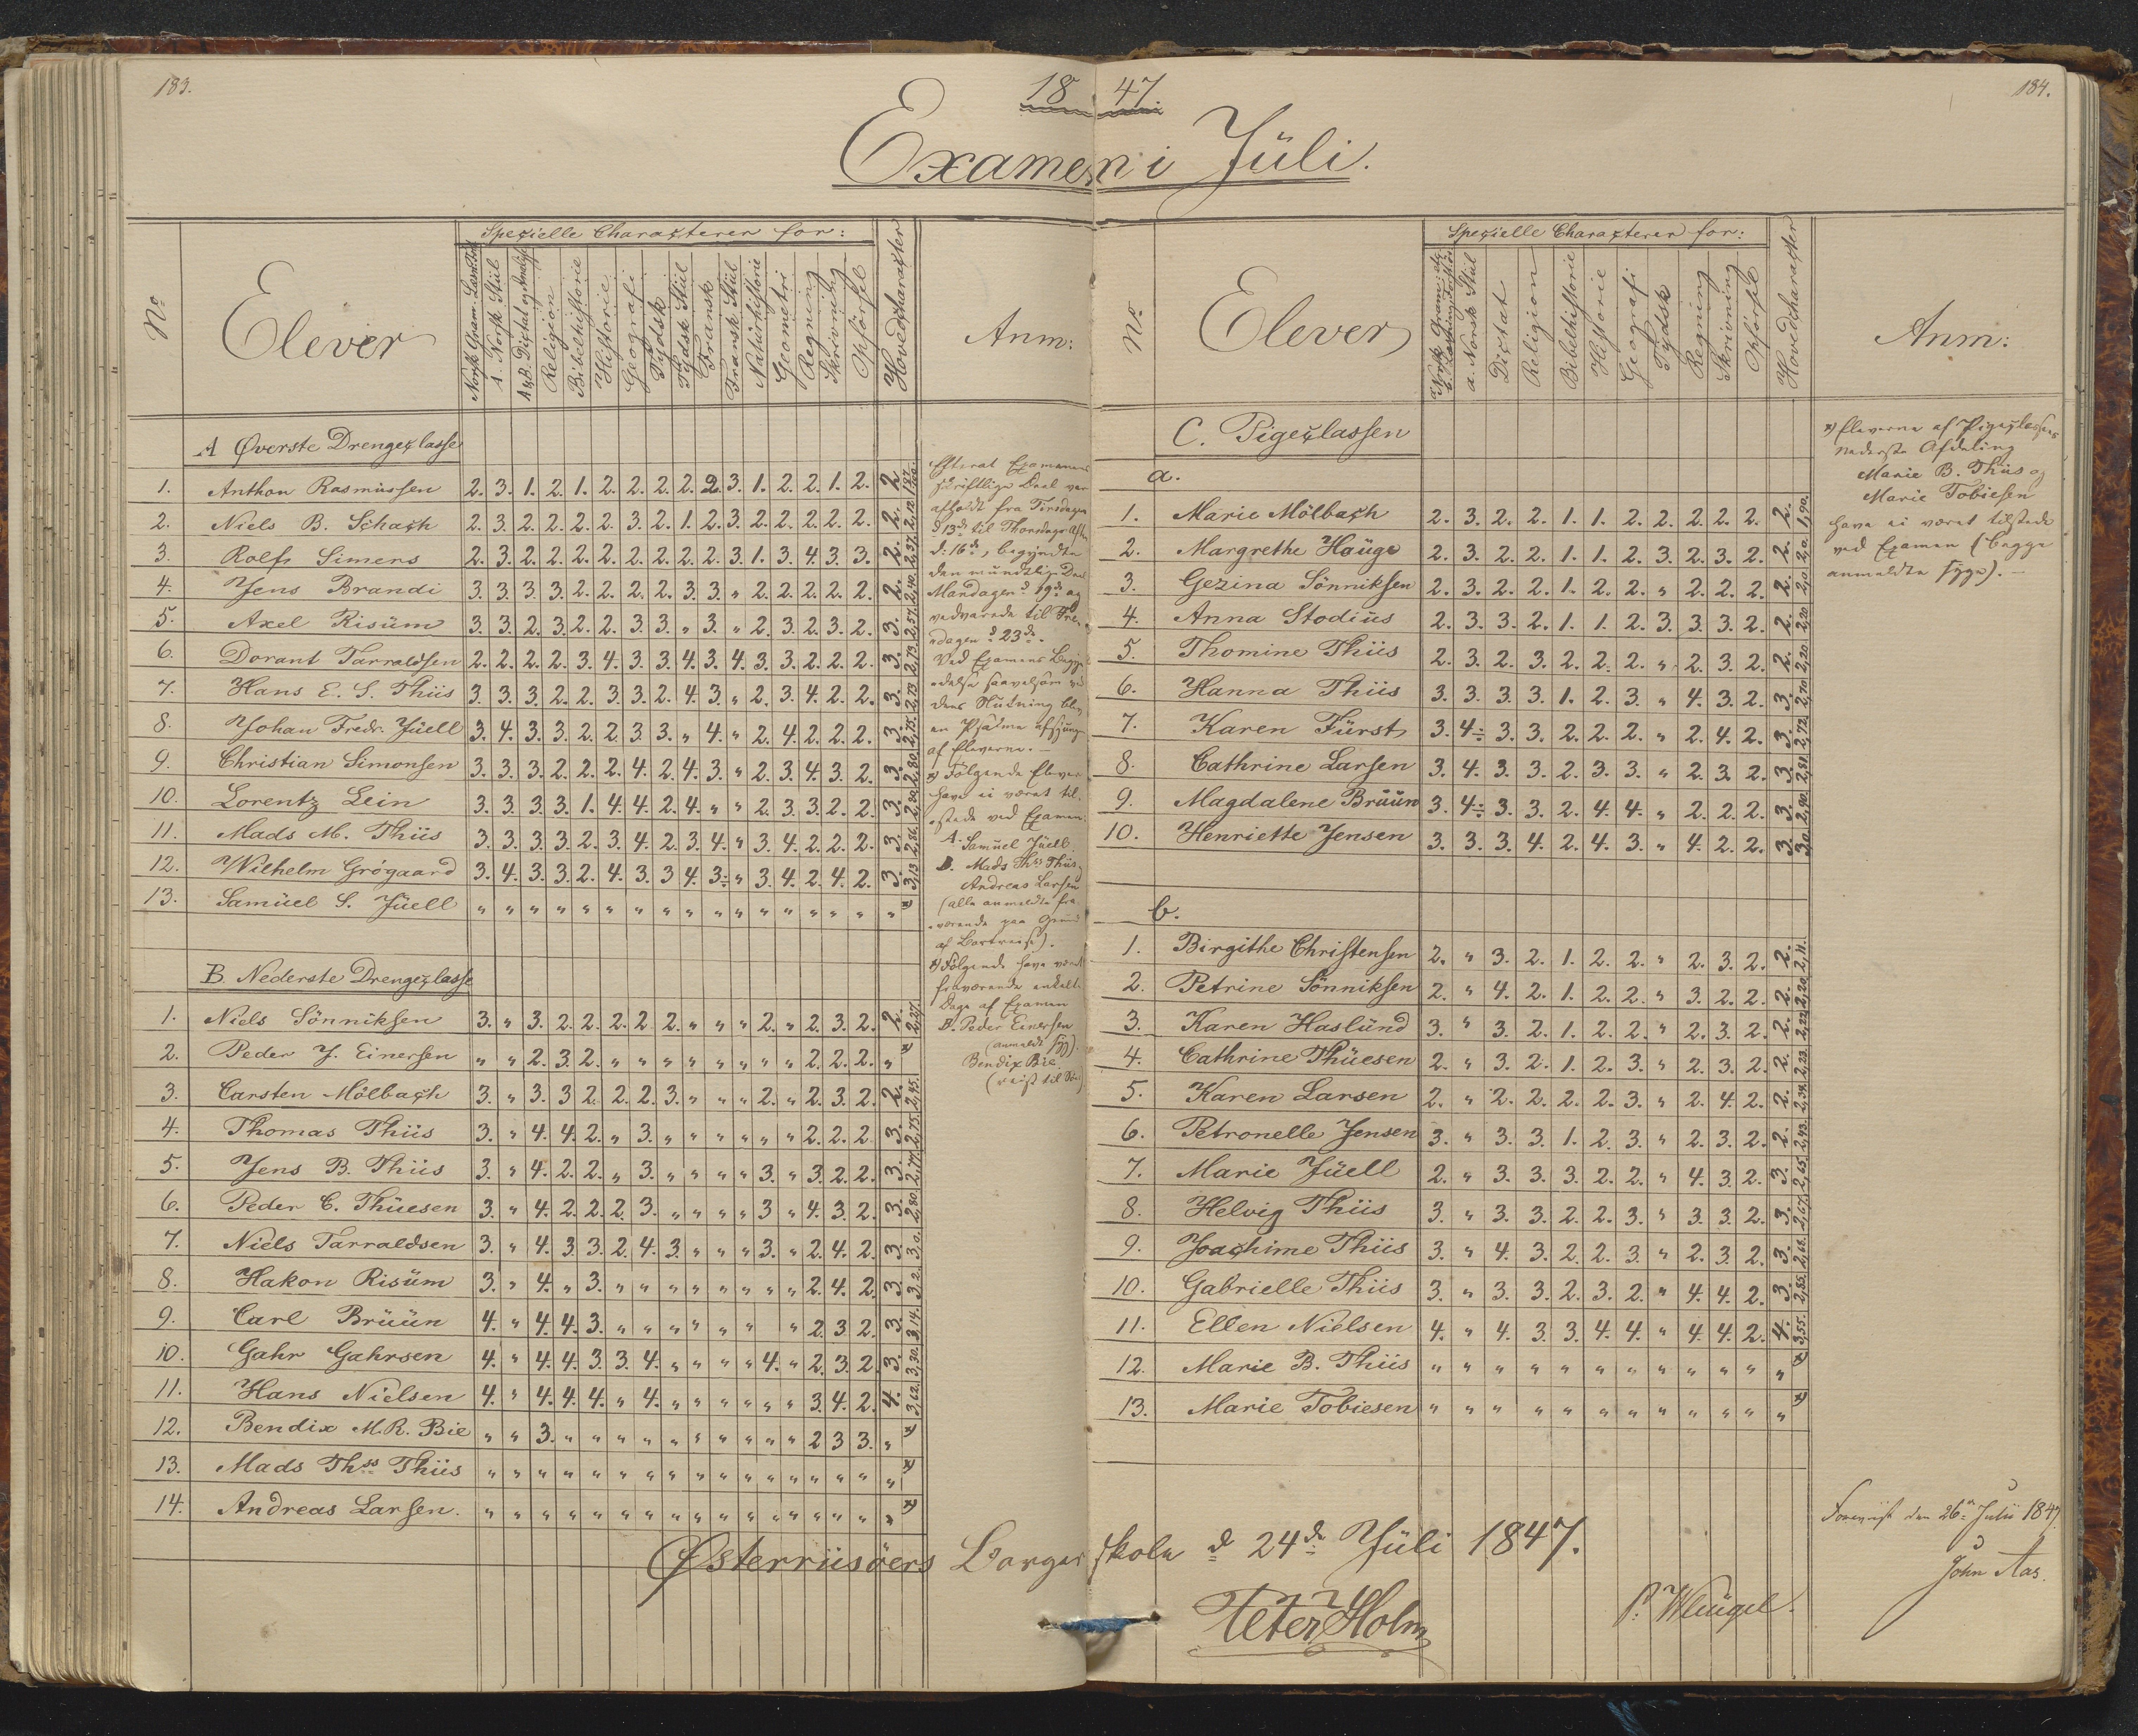 183.
184.
18 47.
Examen i Jüli.
No
Elever
Spezielle Characterer for:
Norsk Gram.
A. Norsk Stiil
A & B. Dictat og Analyse
Religion
Bibelhistorie
Historie
Geografi
Tydsk
Tydsk Stiil
Fransk
Fransk Stiil
Natürhistorie
Geometri
Regning
Skrivning
Opförsel
Hovedcharacter
Anm:
A Øverste Drengeclasse
1. Anthon Rasmüssen 2. 3. 1. 2. 1. 2. 2. 2. 2. 2. 3. 1. 2. 2. 1. 2. 2. 1,87
2. Niels B. Schach 2. 3. 2. 2. 2. 2. 3. 2. 1. 2. 3. 2. 2. 2. 2. 2. 2. 2,12.
3. Rolfs Simens 2. 3. 2. 2. 2. 2. 2. 2. 2. 2. 3. 1. 3. 4. 3. 3. 2. 2,37.
4. Jens Brandi 3. 3. 3. 3. 2. 2. 2. 2. 3. 3. " 2. 2. 2. 2. 2. 2. 2,40.
5. Axel Risüm 3. 3. 2. 3. 2. 2. 3. 3. " 3. " 2. 3. 2. 3. 2. 3. 2,57.
6. Dorant Tarraldsen 2. 2. 2. 2. 3. 4. 3. 3. 4. 3. 4. 3. 3. 2. 2. 2. 3. 2,73.
7. Hans E. S. Thiis 3. 3. 3. 2. 2. 3. 3. 2. 4. 3. " 2. 3. 4. 2. 2. 3. 2,73.
8. Johan Fredr. Jüell 3. 4. 3. 3. 2. 2. 3. 3. " 4. " 2. 4. 2. 2. 2. 3. 2,75.
9. Christian Simonsen 3. 3. 3. 2. 2. 2. 4. 2. 4. 3. " 2. 3. 4. 3. 2. 3. 2,80.
10. Lorentz Lein 3. 3. 3. 3. 1. 4. 4. 2. 4. " " 2. 3. 3. 2. 2. 3. 2,80.
11. Mads M. Thiis 3. 3. 3. 3. 2. 3. 4. 2. 3. 4. " 3. 4. 2. 2. 2. 3. 2,86.
12. Wilhelm Grógaard 3. 4. 3. 3. 2. 4. 3. 3 4. 3÷ " 3. 4. 2. 4. 2. 3. 3,13
13. Samüel S. Jüell " " " " " " " " " " " " " " " " " *)
B. Nederste Drengeclasse
1. Niels Sönniksen 3. " 3. 2. 2. 2. 2 2. " " " 2. " 2. 3. 2. 2. 2,27.
2. Peder J. Einersen " " 2. 3. 2. " " " " " " " " 2. 2. 2. " *)
3. Carsten Mölbach 3. " 3. 3 2. 2. 2. 3. " " " 2. " 2. 3. 2. 2. 2,45.
4. Thomas Thiis 3. " 4. 4. 2. " 3. " " " " " " 2. 2. 2 3. 2,75.
5. Jens B. Thiis 3. " 4. 2. 2. " 3. " " " " 3. " 3. 2. 2. 3. 2,77.
6. Peder C. Thüesen 3. " 4. 2. 2. 2. 3. " " " " 3 " 4. 3. 2. 3. 2,80.
7. Niels Tarraldsen 3. " 4. 3. 3. 2. 4. 3. " " " 3. " 2. 4. 2. 3. 3,0.
8. Hakon Risüm 3. " 4. " 3. " " " " " " " " 2. 4. 2. 3. 3,2.
9. Carl Brüün 4. " 4. 4. 3. " " " " " " " 2. 3. 2. 3. 3,14.
10. Gahr Gahrsen 4. " 4. 4. 3. 3. 4. " " " " 4. " 2. 3. 2. 3. 3,30.
11. Hans Nielsen 4. " 4. 4. 4. " 4. " " " " " " 3. 4. 2. 4. 3,62.
12. Bendix M.R. Bie " " 3. " " " " " " " " " " 2 3 3. " *)
13. Mads Thss Thiis " " " " " " " " " " " " " " " " " *)
14. Andreas Larsen. " " " " " " " " " " " " " " " " " *)
Efterat Examenens
skriftlige Deel var
afholdt fra Tirsdagen
d 13de til Thorsdag Aften
d: 16de, begyndte
den mundtlige Deel
Mandagen d 19de og
vedvarede til Fre-
dagen d 23de.
Ved Examens Begyn-
delse saavelsom ved
dens Slutning blev
en Psalme afsjungen
af Eleverne. —
*) Følgende Elever
have ei været til-
stede ved Examen.
A. Samüel Jüell.
B. Mads Thss Thiis,
Andreas Larsen
(alle anmeldte fra-
værende paa Grund
af Bortreise).
*) Følgende have været
fraværende enkelte
Dage af Examen
B. Peder Einersen
(anmeldt syg).
Bendix Bie.
(reist til Søes)
No
Elever
Spezielle Characterer for:
a. Norsk Stiil
Dictat
Religion
Bibelhistorie
Historie
Geografi
Tydsk
Regning
Skrivning
Opförsel
Hovedcharacter
Anm:
C. Pigeclassen
a.
1. Marie Mölbach 2. 3. 2. 2. 1. 1. 2. 2. 2. 2. 2. 2. 1,90.
2. Margrethe Haüge 2. 3. 2. 2. 1. 1. 2. 3. 2. 3. 2. 2. 2,0.
3. Gezina Sönniksen 2. 3. 2. 2. 1. 2. 2. " 2. 2. 2. 2. 2,0.
4. Anna Stodiüs 2. 3. 3. 2. 1. 1. 2. 3. 3. 3. 2. 2. 2,20
5. Thomine Thiis 2. 3. 2. 3. 2. 2. 2. " 2. 3. 2. 2. 2,20
6. Hanna Thiis 3. 3. 3. 3. 1. 2. 3. " 4. 3. 2. 3. 2,70
7. Karen Fürst 3. 4÷ 3. 3. 2. 2. 2. " 2. 4. 2. 3. 2,72
8. Cathrine Larsen 3. 4. 3. 3. 2. 3. 3. " 2. 3. 2. 3. 2,81.
9. Magdalene Brüün 3. 4÷ 3. 3. 2. 4. 4. " 2. 2. 2. 3. 2,90.
10. Henriette Jensen 3. 3. 3. 4. 2. 4. 3. " 4. 2. 2. 3. 3,0.
b.
1. Birgithe Christensen 2. " 3. 2. 1. 2. 2. " 2. 3. 2. 2. 2,11.
2. Petrine Sönniksen 2. " 4. 2. 1. 2. 2. " 3. 2. 2. 2. 2,20
3. Karen Haslünd 3. " 3. 2. 1. 2. 2. " 2. 3. 2. 2. 2,22
4. Cathrine Thüesen 2. " 3. 2. 1. 2. 3. " 2. 3. 2. 2. 2,23.
5. Karen Larsen 2. " 2. 2. 2. 2. 3. " 2. 4. 2. 2. 2,34.
6. Petronelle Jensen 3. " 3. 3. 1. 2. 3. " 2. 3. 2. 2. 2,43.
7. Marie Jüell 2. " 3. 3. 3. 2. 2. " 4. 3. 2. 3. 2,65.
8. Helvig Thiis 3. " 3. 3. 2. 2. 3. " 3. 3. 2. 3. 2,67.
9. Joachime Thiis 3. " 4. 3. 2. 2. 3. " 2. 3. 2. 3. 2,68.
10. Gabrielle Thiis 3. " 3. 3. 2. 3. 2. " 4. 4. 2. 3. 2,85.
11. Ellen Nielsen 4. " 4. 3. 3. 4. 4. " 4. 4. 2. 4. 3,55.
12. Marie B. Thiis " " " " " " " " " " " " *)
13. Marie Tobiesen " " " " " " " " " " " " *)
*) Eleverne af Pigeclassens
nederste Afdeling
Marie B. Thiis og
Marie Tobiesen
have ei været tilstede
ved Examen (begge
anmeldte syge). —
Østerriisöers Borgerskole d 24de Jüli 1847.
Peter Holm
P. Wleügel.
Foreviist den 26de Julii 1847.
John Aas.